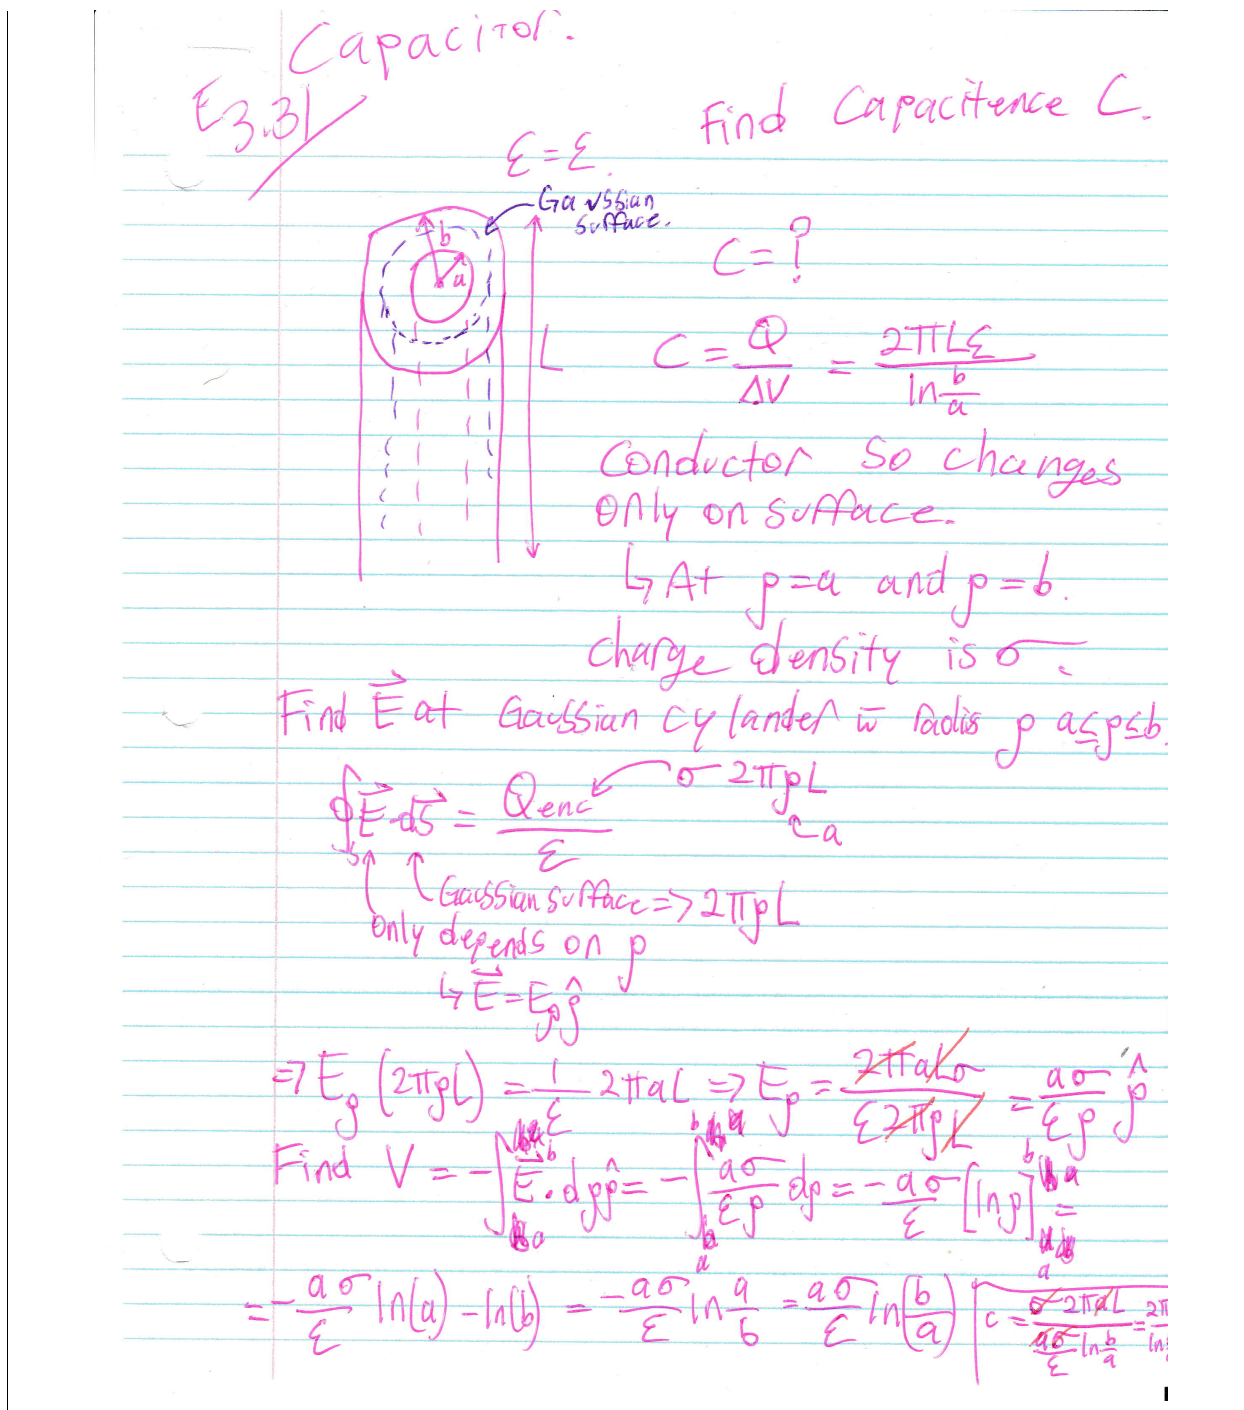 Capacitor.
E3.31
Find Capacitence C.
ε = ε.
Gaussian
surface.
b
a
L
C = ?
C = Q/ΔV = 2πLε / ln b/a
Conductor so changes
only on surface.
↳ At ρ=a and ρ=b.
charge density is σ.
Find E⃗ at Gaussian cylander w̄ radis ρ a≤ρ≤b.
∮ E⃗·dS⃗ = Qenc/ε ← σ 2πρL
↳ a
Gaussian surface => 2πρL
only depends on ρ
↳ E⃗ = Eρ ρ̂
=> Eρ (2πρL) = 1/ε 2πaL => Eρ = 2πaLσ / ε2πρL = aσ/ερ ρ̂
Find V = -∫ₐᵇ E⃗·dρρ̂ = -∫ₐᵇ aσ/ερ dρ = -aσ/ε [lnρ]ₐᵇ =
= -aσ/ε ln(a) - ln(b) = -aσ/ε ln a/b = aσ/ε ln(b/a)
C = σ2πaL / aσ/ε ln b/a =